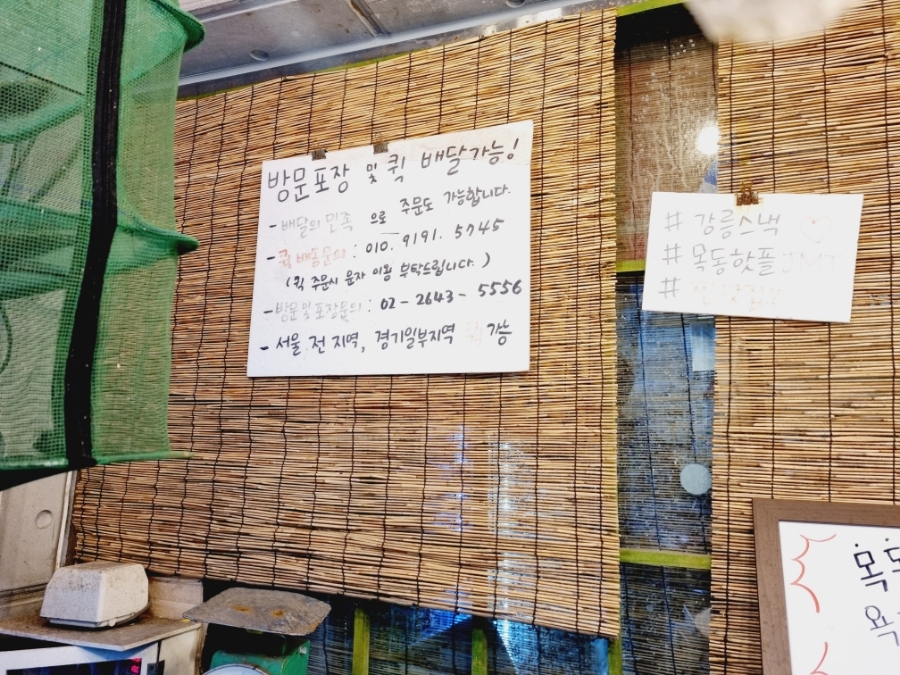 방문포장 및 퀵 배달가능!
- 배달의 민족 으로 주문도 가능합니다.
- 퀵 배송문의 : 010. 9191. 5745
(퀵 주문시 문자 이용 부탁드립니다.)
- 방문 및 포장문의 : 02 - 2643 - 5556
- 서울 전 지역, 경기일부지역 퀵 가능
# 강릉스낵
# 목동핫플 JMT
#
목도
욕